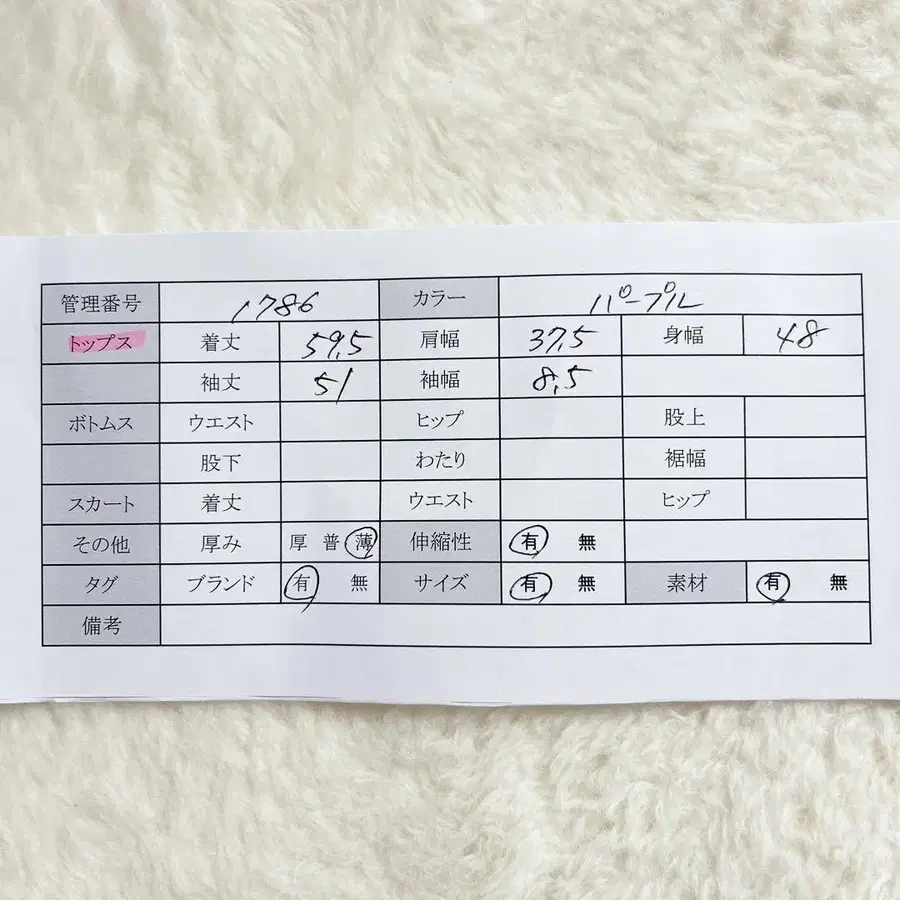 管理番号 1786 カラー パープル
トップス 着丈 59.5 肩幅 37.5 身幅 48
袖丈 51 袖幅 8.5
ボトムス ウエスト ヒップ 股上
股下 わたり 裾幅
スカート 着丈 ウエスト ヒップ
その他 厚み 厚 普 薄 伸縮性 有 無
タグ ブランド 有 無 サイズ 有 無 素材 有 無
備考